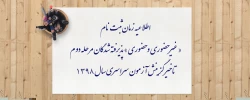 اطلاعیه زمان ثبت نام
« غیرحضوری و حضوری » پذیرفته شدگان مرحله دوم
تاخیر گزینش آزمون سراسری سال ۱۳۹۸